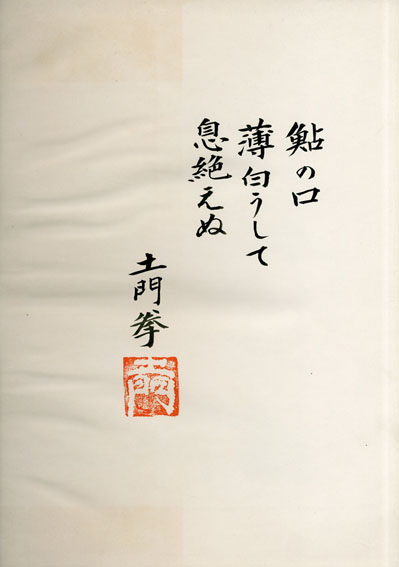 鮎の口
薄白うして
息絶えぬ
土門拳
土門